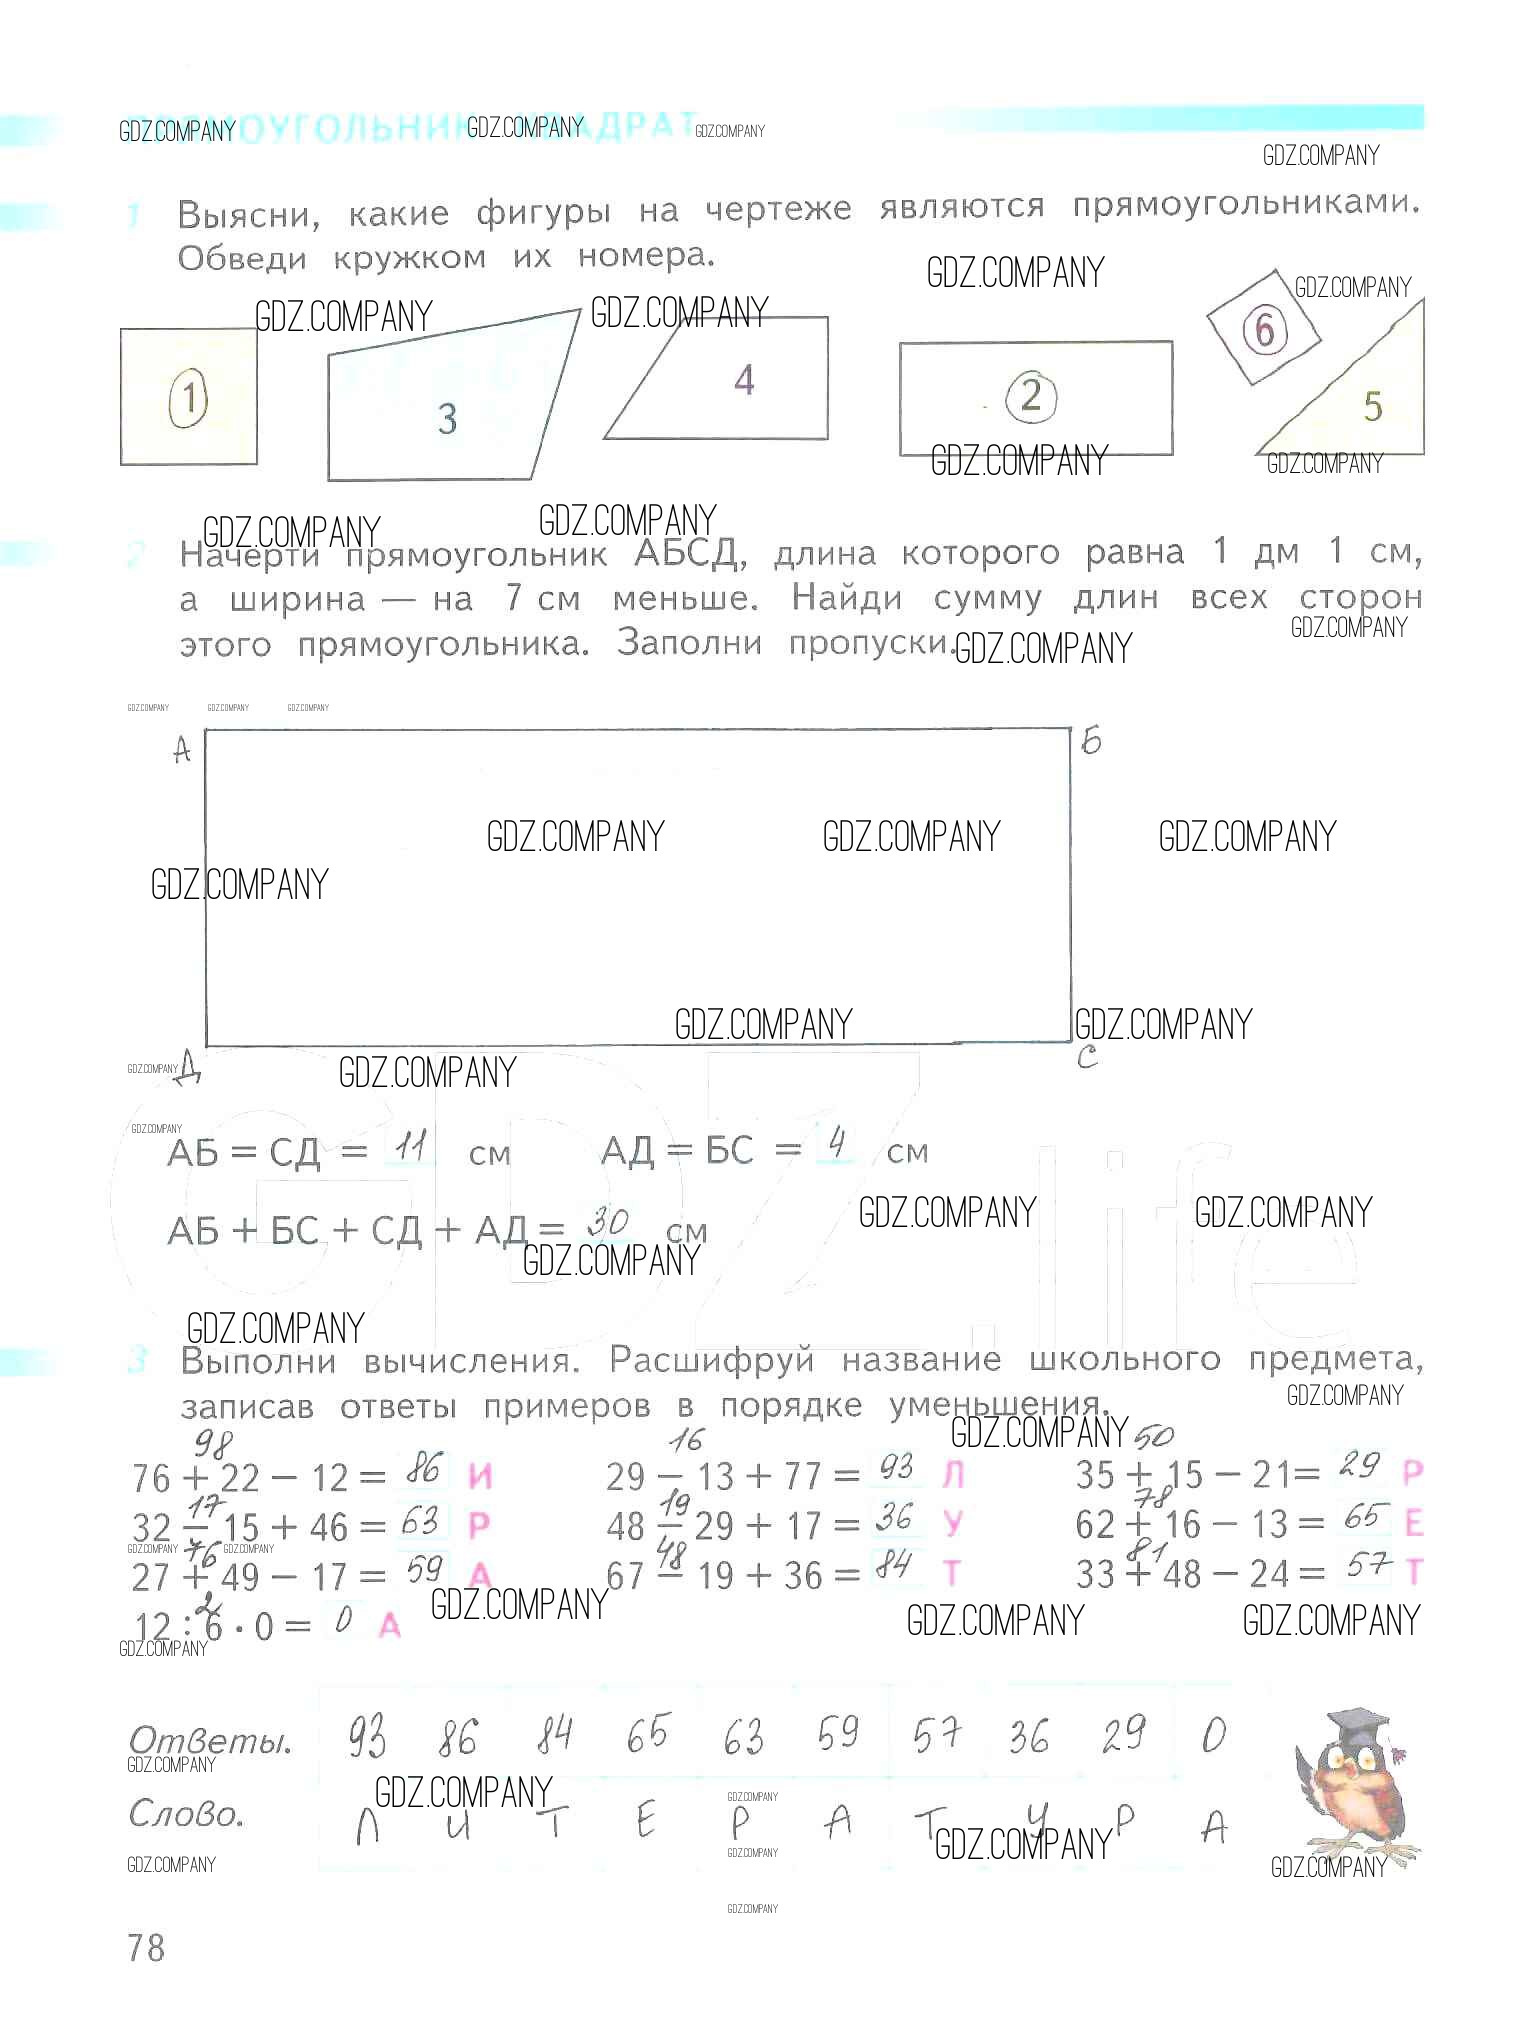 GDZ.COMPANY ПРЯМОУГОЛЬНИК GDZ.COMPANY КВАДРАТ GDZ.COMPANY
GDZ.COMPANY
1 Выясни, какие фигуры на чертеже являются прямоугольниками.
Обведи кружком их номера.
GDZ.COMPANY
GDZ.COMPANY GDZ.COMPANY GDZ.COMPANY
1 3 4 2 6 5
GDZ.COMPANY GDZ.COMPANY
GDZ.COMPANY GDZ.COMPANY
2 Начерти прямоугольник АБСД, длина которого равна 1 дм 1 см,
а ширина — на 7 см меньше. Найди сумму длин всех сторон
GDZ.COMPANY
этого прямоугольника. Заполни пропуски. GDZ.COMPANY
GDZ.COMPANY GDZ.COMPANY GDZ.COMPANY
А Б
GDZ.COMPANY GDZ.COMPANY GDZ.COMPANY
GDZ.COMPANY
GDZ.COMPANY GDZ.COMPANY
GDZ.COMPANY Д GDZ.COMPANY С
GDZ.COMPANY
АБ = СД = 11 см АД = БС = 4 см
GDZ.life
GDZ.COMPANY GDZ.COMPANY
АБ + БС + СД + АД = 30 см
GDZ.COMPANY
GDZ.COMPANY
3 Выполни вычисления. Расшифруй название школьного предмета,
GDZ.COMPANY
записав ответы примеров в порядке уменьшения.
GDZ.COMPANY
98 16 50
76 + 22 − 12 = 86 И 29 − 13 + 77 = 93 Л 35 + 15 − 21= 29 Р
17 19 78
32 − 15 + 46 = 63 Р 48 − 29 + 17 = 36 У 62 + 16 − 13 = 65 Е
GDZ.COMPANY GDZ.COMPANY
76 48 81
27 + 49 − 17 = 59 А 67 − 19 + 36 = 84 Т 33 + 48 − 24 = 57 Т
GDZ.COMPANY GDZ.COMPANY GDZ.COMPANY
2
12 : 6 · 0 = 0 А
GDZ.COMPANY
Ответы. 93 86 84 65 63 59 57 36 29 0
GDZ.COMPANY
GDZ.COMPANY GDZ.COMPANY
Слово. Л И Т Е Р А Т У Р А
GDZ.COMPANY
GDZ.COMPANY GDZ.COMPANY GDZ.COMPANY
GDZ.COMPANY
78